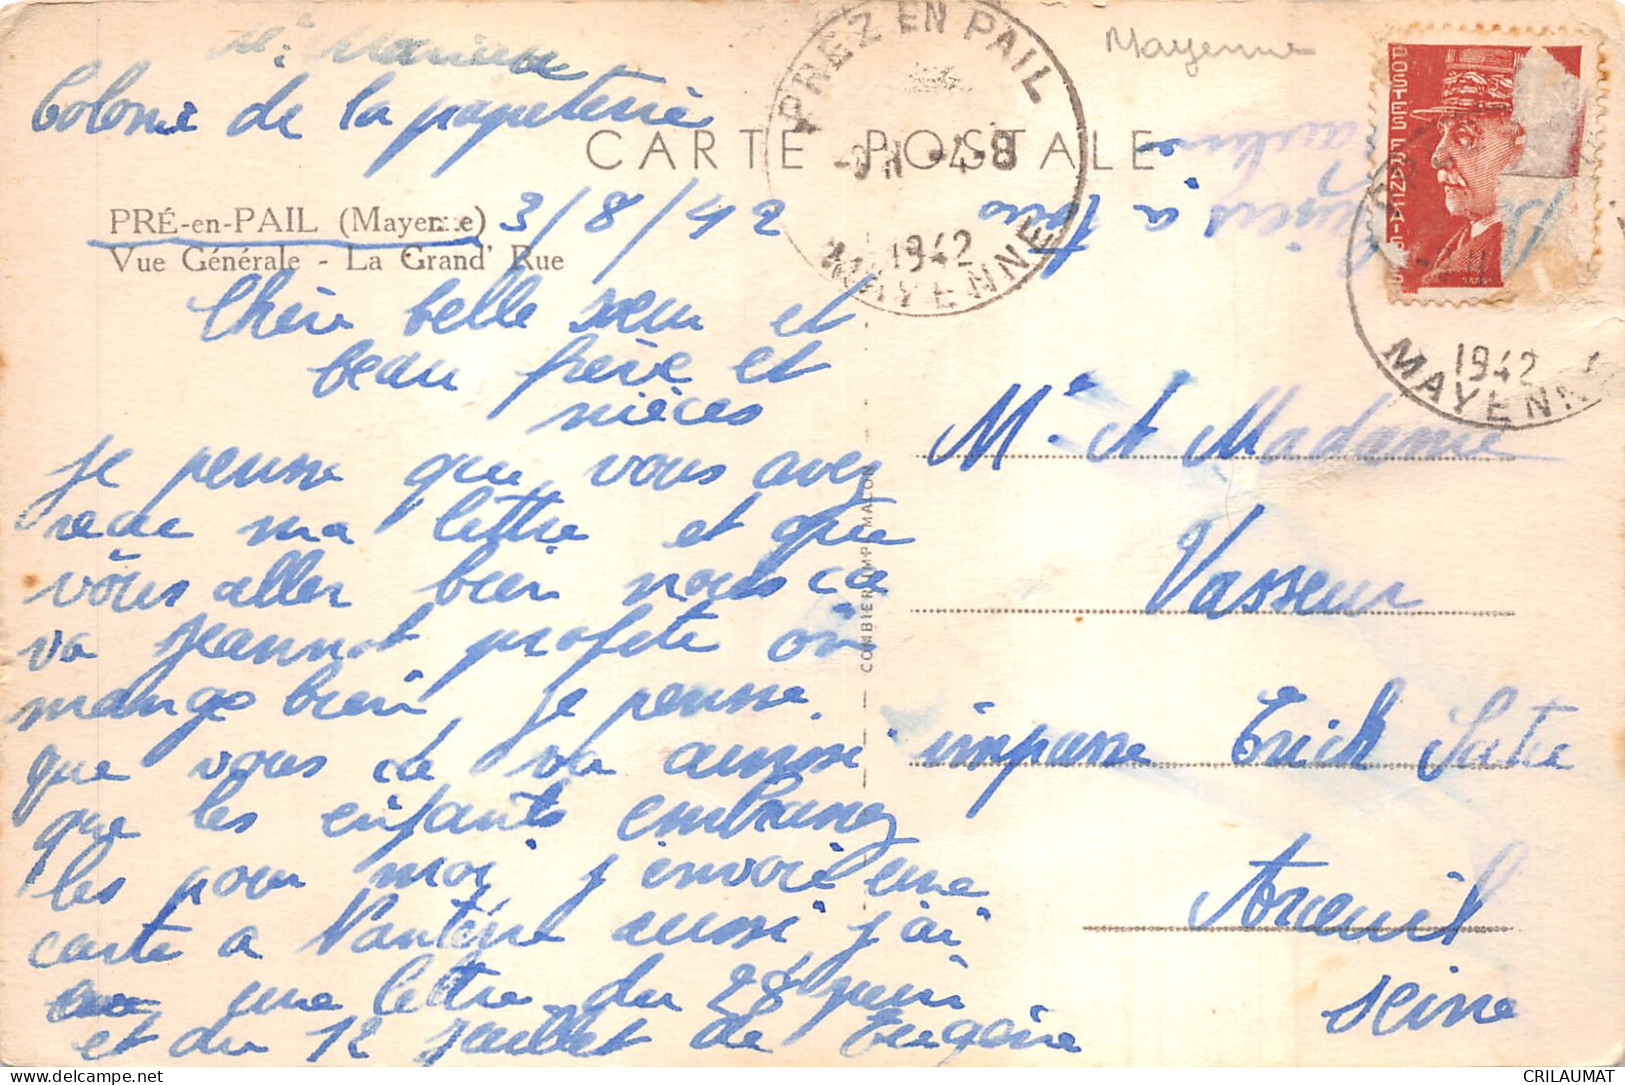 Colonie de la papeterie
CARTE POSTALE
PRÉ-en-PAIL (Mayenne) 3/8/42
Vue Générale - La Grand' Rue
Chère belle sœur et
beau frère et
nièces
je pense que vous avez
recue ma lettre et que
vous aller bien nous ca
va Jeannot profite on
mange bien je pense
que vous ca va aussi
que les enfants embrassez
les pour moi j'envoie une
carte a Nanterre aussi j'ai
une lettre du 28 juin
et du 12 juillet de Eugène
COMBIER IMP. MACON
PREZ EN PAIL
1942
MAYENNE
Mayenne
à tous
POSTES FRANCAISES
1942
MAYENNE
Mr et Madame
Vasseur
impasse Erick Satie
Arcueil
seine
CRILAUMAT